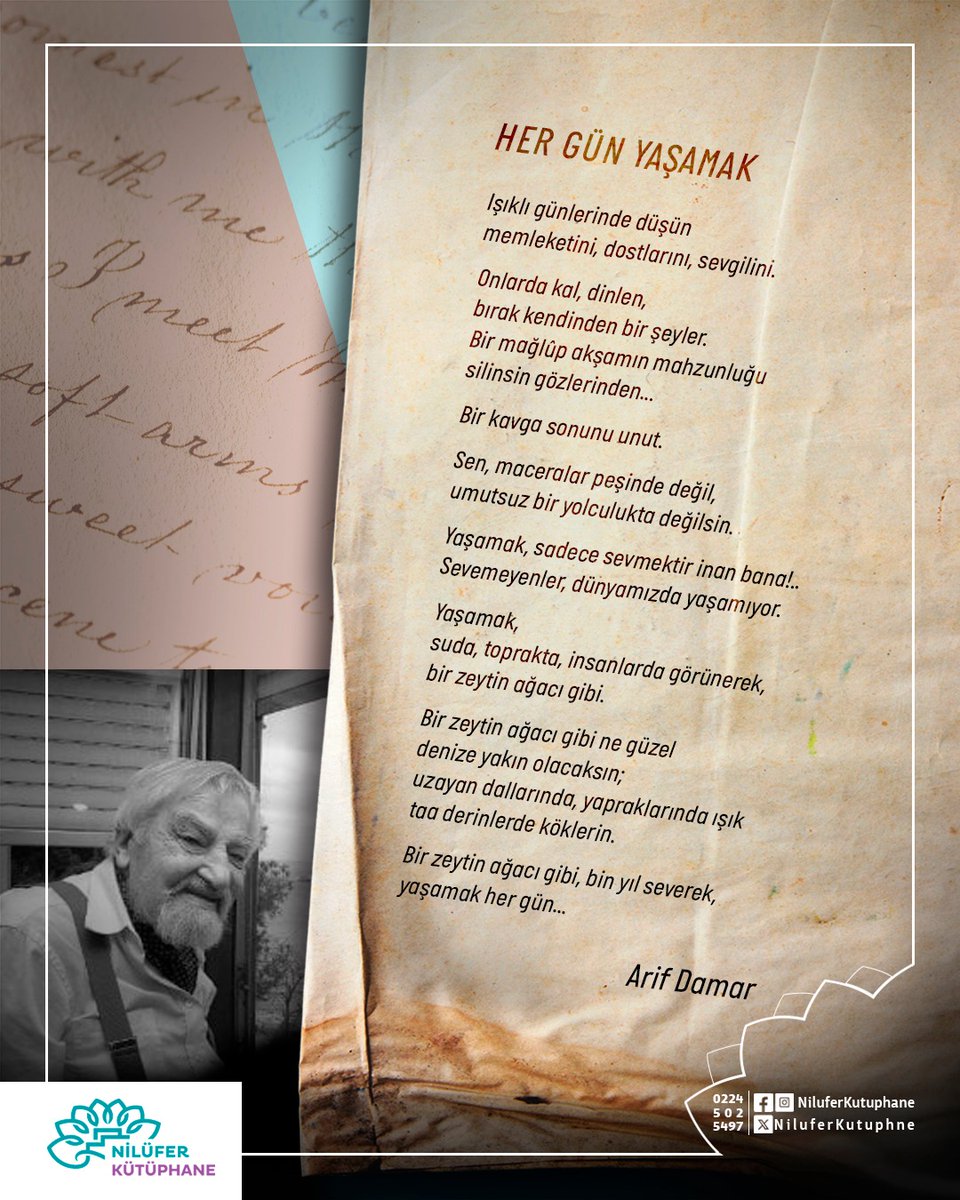 omest in
with me
I meet
soft arms
sweet
cene
HER GÜN YAŞAMAK
Işıklı günlerinde düşün
memleketini, dostlarını, sevgilini.
Onlarda kal, dinlen,
bırak kendinden bir şeyler.
Bir mağlûp akşamın mahzunluğu
silinsin gözlerinden...
Bir kavga sonunu unut.
Sen, maceralar peşinde değil,
umutsuz bir yolculukta değilsin.
Yaşamak, sadece sevmektir inan bana!..
Sevemeyenler, dünyamızda yaşamıyor.
Yaşamak,
suda, toprakta, insanlarda görünerek,
bir zeytin ağacı gibi.
Bir zeytin ağacı gibi ne güzel
denize yakın olacaksın;
uzayan dallarında, yapraklarında ışık
taa derinlerde köklerin.
Bir zeytin ağacı gibi, bin yıl severek,
yaşamak her gün...
Arif Damar
NİLÜFER
KÜTÜPHANE
0224
502
5497
NiluferKutuphane
NiluferKutuphne